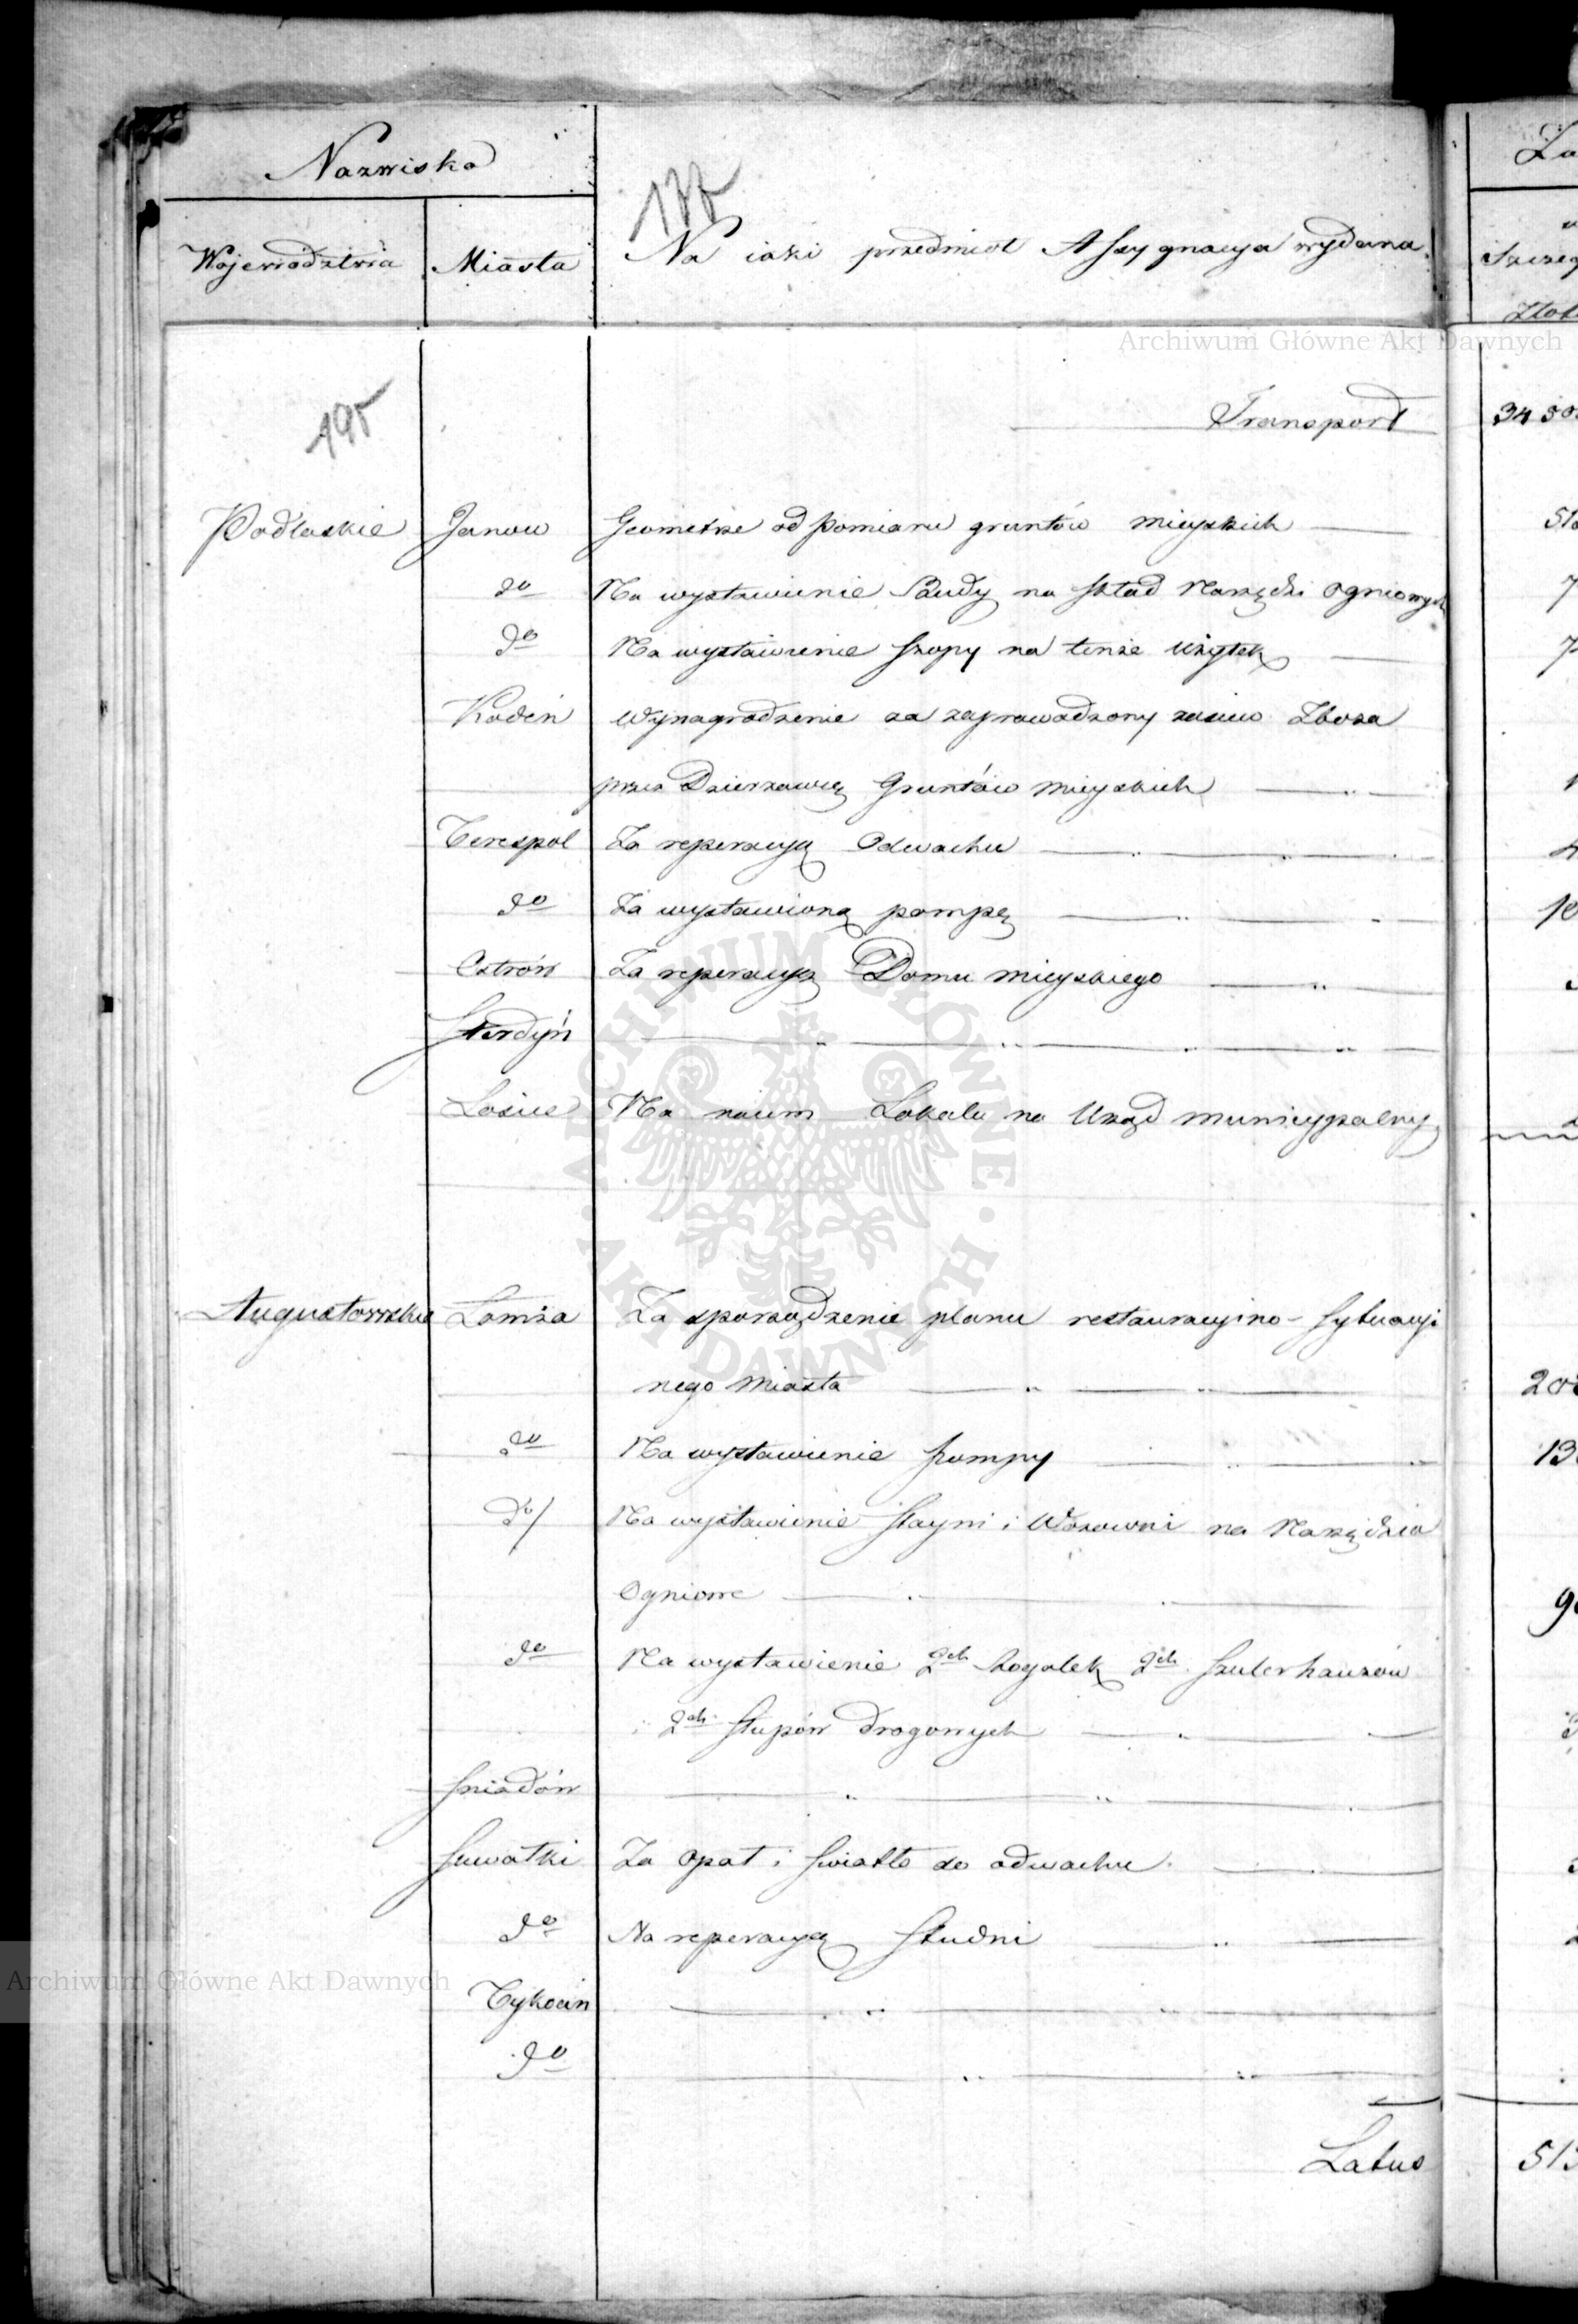 Nazwiska
Za
177
Wojewodztwa Miasta Na iaki przedmiot Assygnacya wydana
Szczeg
Złot
Archiwum Główne Akt Dawnych
195
Transport 34 50
Podlaskie Janow Geometrze od pomiaru gruntów mieyskich 51
do Na wystawienie Budy na skład Narzędzi Ogniowych 7
do Na wystawienie szopy na tenże użytek 7
Kodeń Wynagrodzenie za zaprowadzony zasiew Zboża
przez Dzierzawcę Gruntów mieyskich
Terespol Za reperacyą Odwachu
do Za wystawioną pompę 10
Ostrów Za reperacyą Domu mieyskiego
Sterdyń
Łosice Na naiem Lokalu na Urząd municypalny
ARCHIWUM GŁÓWNE AKT DAWNYCH
Augustowskie Łomża Za sporządzenie planu restauracyino-sytuacyi
nego Miasta 20
do Na wystawienie pompy 13
do Na wystawienie Stayni i Wozowni na Narzędzia
Ogniowe 9
do Na wystawienie 2ch Rogatek 2ch Szulerhauzów
i 2ch Słupów drogowych
Sniadów
Suwałki Za Opał i Swiatło do odwachu
do Na reperacyą Studni
Archiwum Główne Akt Dawnych
Tykocin
do
Latus 513